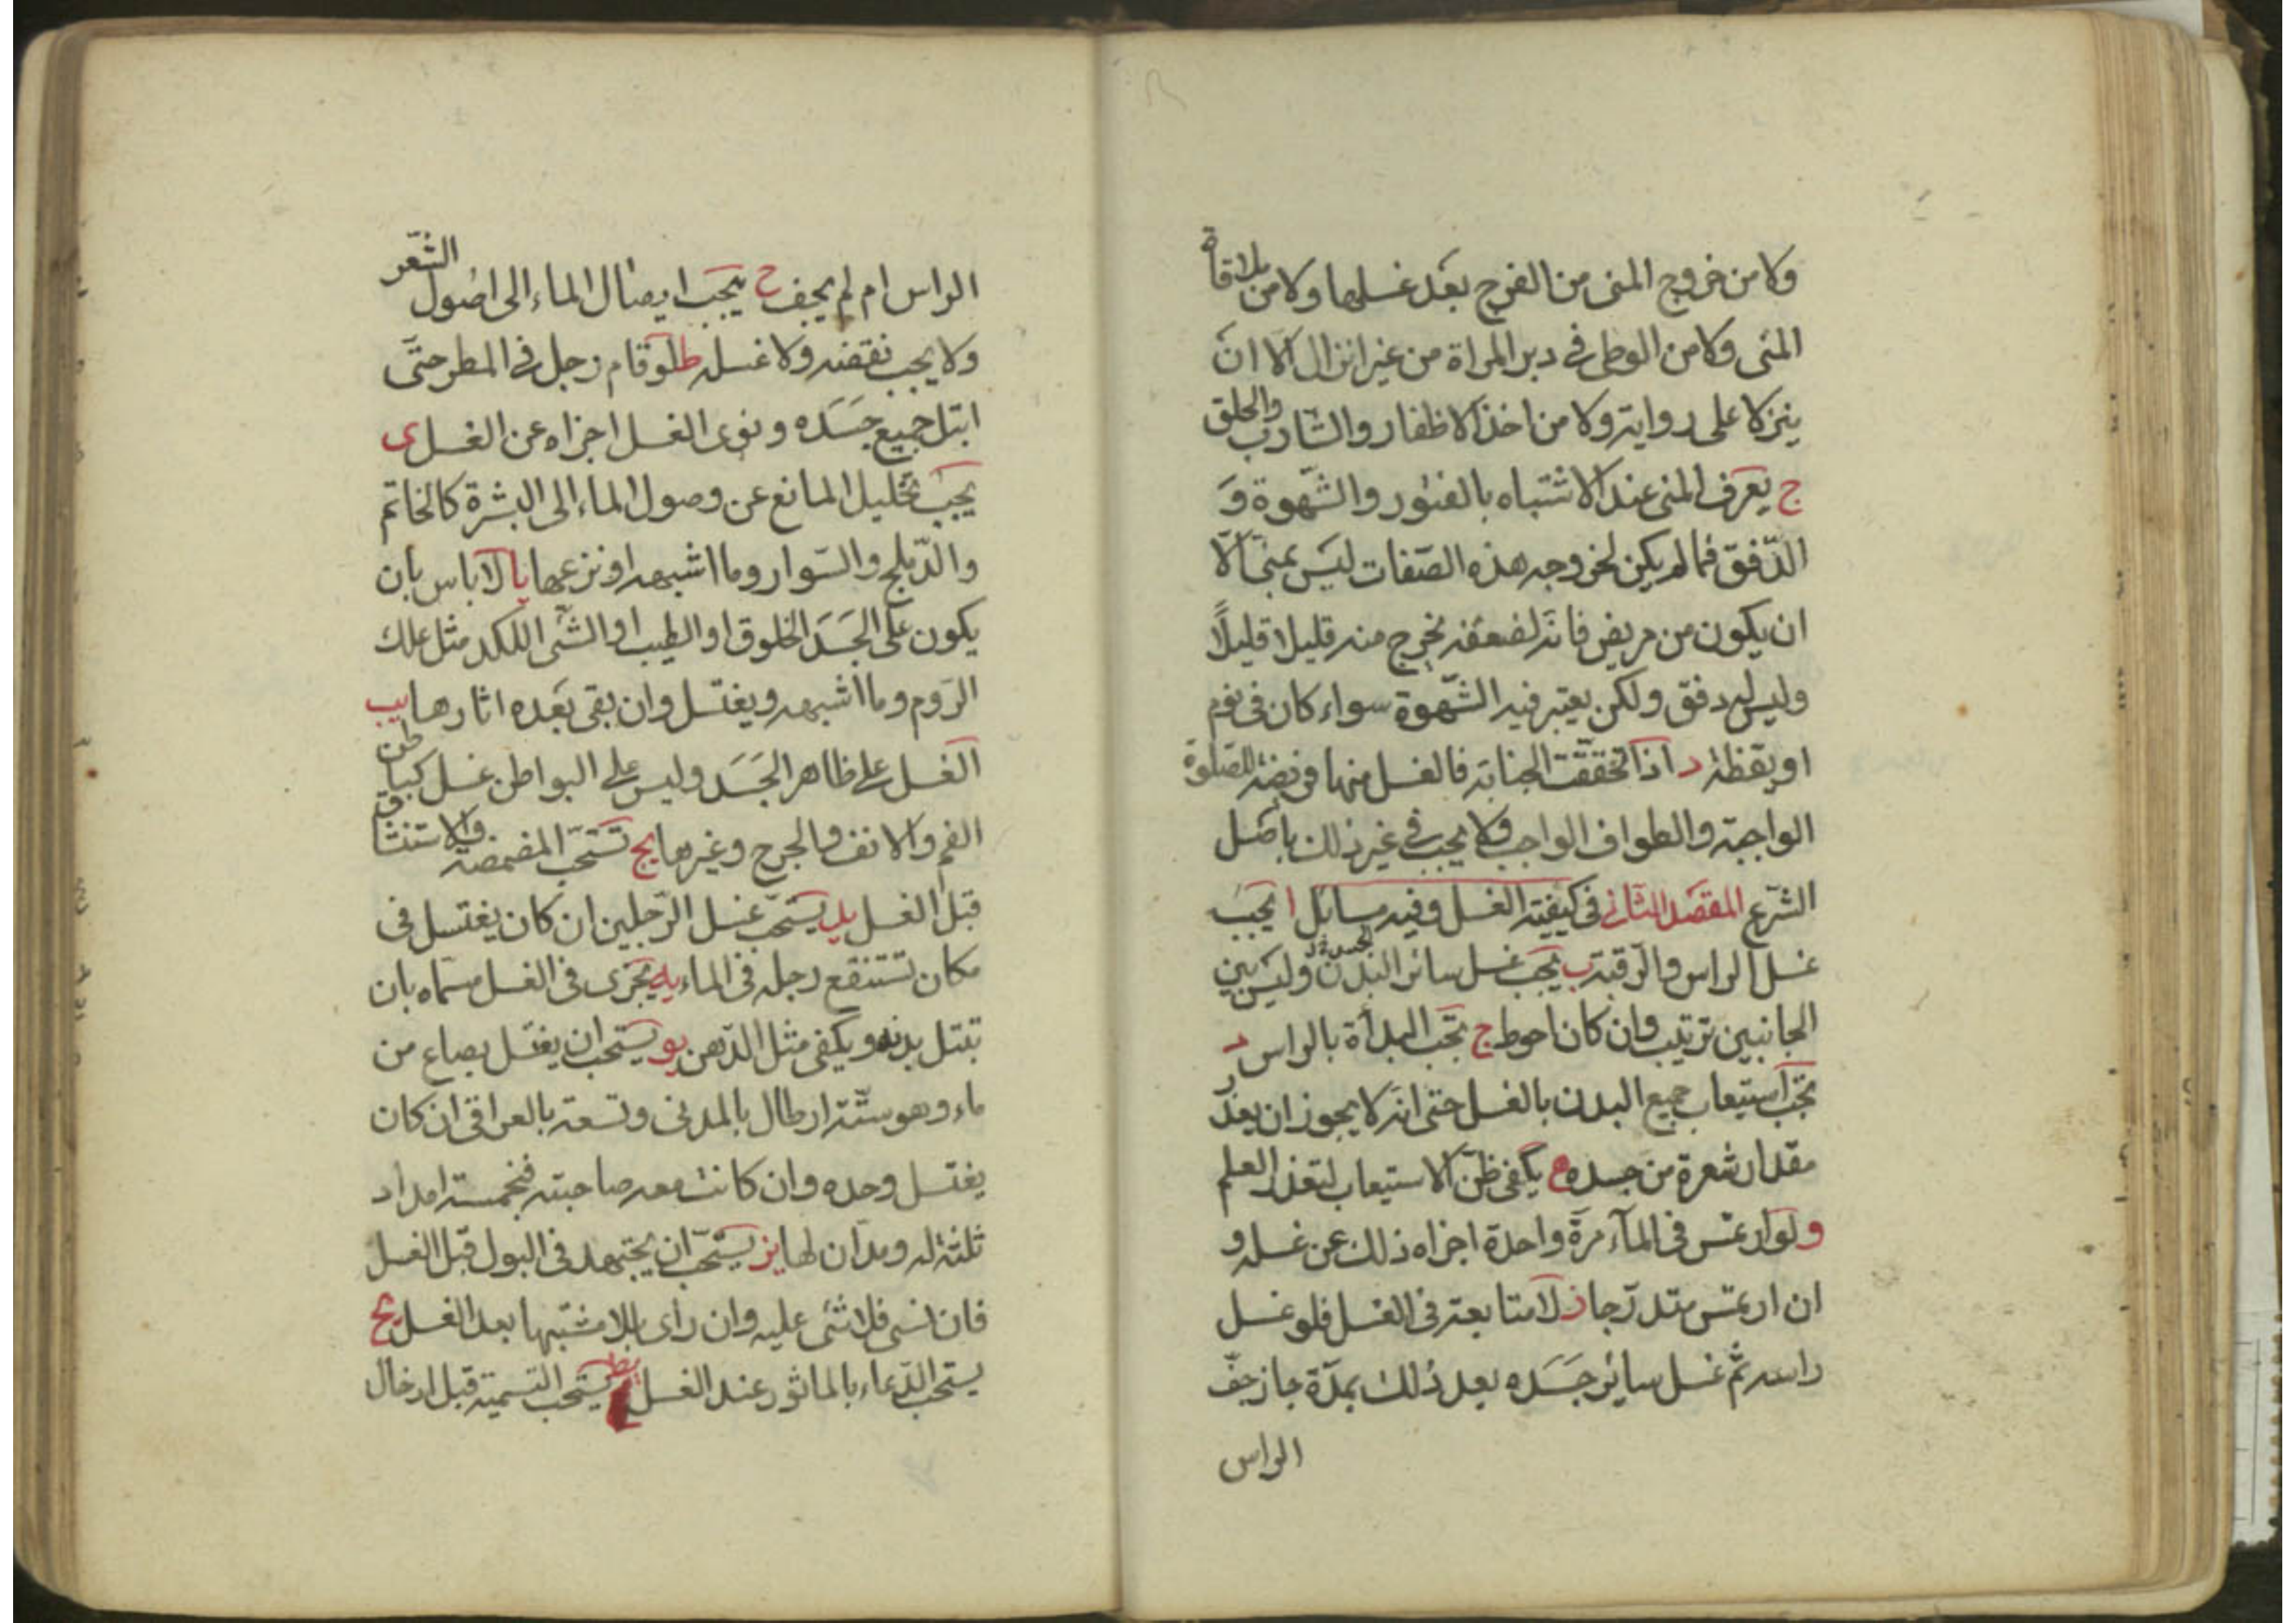 ولا من خروج المنى من الفرج بعَد غسلها ولا من ملاقاة
المنى ولا من الوطى فى دبر المراة من غير انزال الا ان
ينزلا على رواية ولا من اخذ الاظفار والشارب والحلق
ج يعرف المنى عند الاشتباه بالفتور والشهوة وَ
الدّفق فما لم يكن لخروجه هذه الصّفات ليس بمنى الّا
ان يكون من مريض فانه لضعفه يخرج منه قليلا قليلًا
وليس له دفق ولكن يعتبر فيه الشّهوة سواء كان فى نوم
او يقظة د اذا تحققت الجنابة فالغسل منها فريضة للصّلوة
الواجبة والطواف الواجب ولا يجب فى غير ذلك باصَل
الشّرع المقصَد الثانى فى كيفية الغسل وفيه مسائل ا يجبَ
غسل الراس والرّقبة ب يجب غسل سائر البدن وليس بين
الجانبين ترتيب وان كان احوط ج تجب البدأة بالراس د
تجب استيعاب جميع البدن بالغسل حتى انه لا يجوز ان يعذر
مقدار شعرة من جسده ه يكفى ظنّ الاستيعاب لتعذر العلم
و لو ارتمس فى المآء مرةً واحدة اجزاه ذلك عن غسله و
ان ارتمس متدرّجا ز لا متابعة فى الغسل فلو غسل
راسه ثمّ غسل سائر جَسَده بعد ذلك بمدّة جاز جفّ
الراس
الراس ام لم يجف ح يجب ايصال الماء الى اصول الشّعر
ولا يجب نقضه ولا غسله ط لو قام رجل فى المطر حتَّى
ابتل جميع جَسَده و نوى الغسل اجزاه عن الغسل ى
يجبَ تخليل المانع عن وصول الماء الى البشرة كالخاتم
والدّملج والسّوار وما اشبهه او نزعها يا لا باس بان
يكون على الجَسَد الخلوق او الطيب او الشّى اللكد مثل علك
الرّوم وما اشبهه ويغتسل وان بقى بَعَده اثارها يب
الغسل على ظاهر الجَسَد وليس على البواطن غسل كباطن
الفم والانف والجرح وغيرها يج تستحبّ المضمضة والاستنشاق
قبل الغسل يد يستحب غسل الرّجلين ان كان يغتسل فى
مكان تستنقع رجله فى الماء يه يجزى فى الغسل مسمّاه بان
تبتل بدنه ويكفى مثل الدّهن يو يستحب ان يغتسل بصاع من
ماء وهو ستّة ارطال بالمدنى وتسعة بالعراقى ان كان
يغتسل وحده وان كانت معه صاحبته فخمسة امداد
ثلثة له ومدّان لها يز يستحبّ ان يجتهد فى البول قبل الغسل
فان نسى فلا شئى عليه وان راى بللا مشتبها بعد الغسل يح
يستحب الدّعاء بالماثور عند الغسل يط يستحب التسمية قبل ادخال